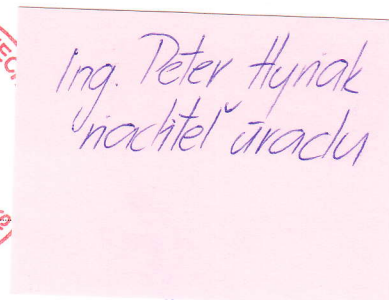 Ing. Peter Hyriak
riaditeľ úradu